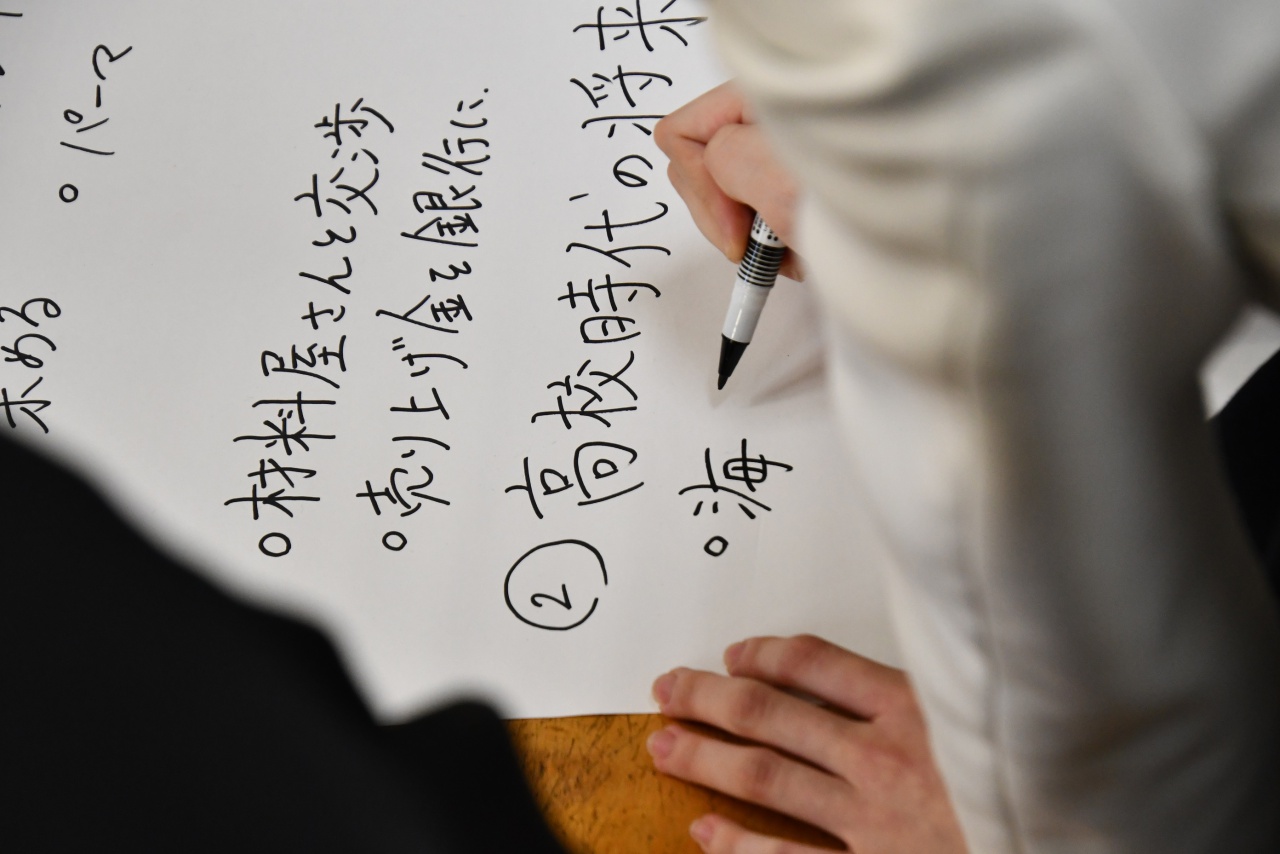 める
○パーマ
○材料屋さんと交渉
○売り上げ金を銀行に.
②高校時代の将来
○海